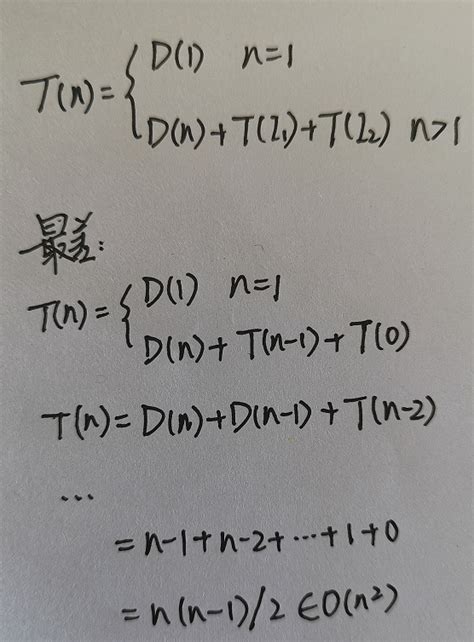 T(n)={ D(1) n=1
D(n)+T(I₁)+T(I₂) n>1
最差:
T(n)={ D(1) n=1
D(n)+T(n-1)+T(0)
T(n)=D(n)+D(n-1)+T(n-2)
...
=n-1+n-2+...+1+0
=n(n-1)/2∈O(n²)